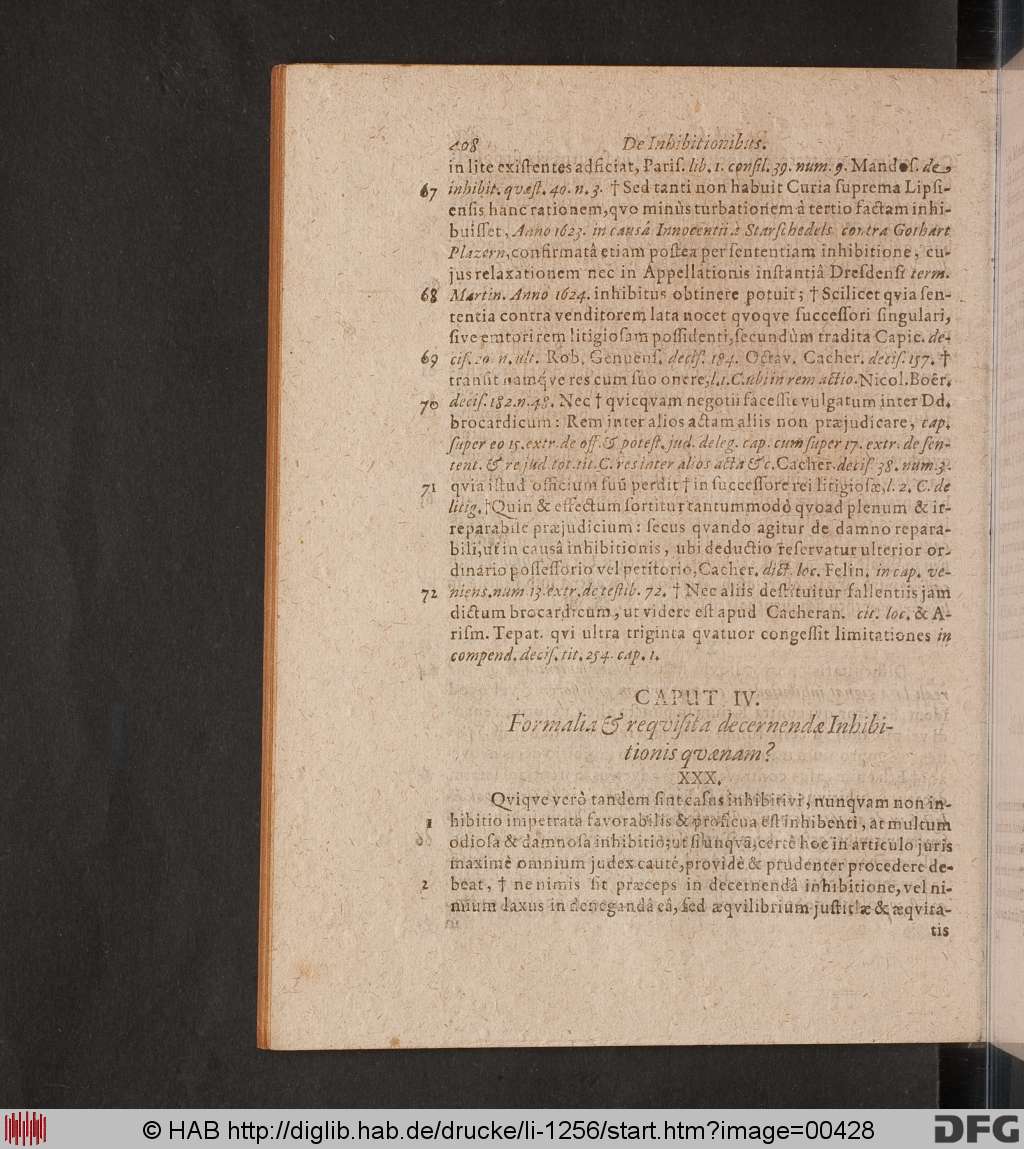 408 De Inhibitionibus.
in lite existentes adficiat, Paris. lib. 1. consil. 39. num. 9. Mandos. de
67 inhibit. qvæst. 40. n. 3. † Sed tanti non habuit Curia suprema Lipsi-
ensis hanc rationem, qvo minùs turbationem â tertio factam inhi-
buisset, Anno 1623. in causâ Innocentii à Starschedels contra Gothart
Plazern, confirmatâ etiam postea per sententiam inhibitione, cu-
jus relaxationem nec in Appellationis instantiâ Dresdensi term.
68 Martin. Anno 1624. inhibitus obtinere potuit; † Scilicet qvia sen-
tentia contra venditorem lata nocet qvoqve successori singulari,
sive emtori rem litigiosam possidenti, secundùm tradita Capic. de-
69 cis. 20. n. ult. Rob. Genuens. decis. 184. Octav. Cacher. decis. 157. †
transit namqve res cum suo onere, l. 1. C. ubi in rem actio. Nicol. Boêr.
70 decis. 182. n. 48. Nec † qvicqvam negotii facessit vulgatum inter Dd.
brocardicum: Rem inter alios actam aliis non præjudicare, cap.
super eo 15. extr. de off. & potest. jud. deleg. cap. cum super 17. extr. de sen-
tent. & re jud. tot. tit. C. res inter alios acta &c. Cacher. decis. 38. num. 3.
71 qvia istud officium suū perdit † in successore rei litigiosæ, l. 2. C. de
litig. † Quin & effectum sortitur tantummodò qvoad plenum & ir-
reparabile præjudicium: secus qvando agitur de damno repara-
bili, ut in causâ inhibitionis, ubi deductio reservatur ulterior or-
dinario possessorio vel petitorio, Cacher. dict. loc. Felin. in cap. ve-
72 niens. num 13. extr. de testib. 72. † Nec aliis destituitur fallentiis jam
dictum brocardicum, ut videre est apud Cacheran. cit. loc. & A-
rism. Tepat. qvi ultra triginta qvatuor congessit limitationes in
compend. decis. tit. 254. cap. 1.
CAPUT IV.
Formalia & reqvisita decernendæ Inhibi-
tionis qvænam?
XXX.
Qviqve verò tandem sint casus inhibitivi, nunqvam non in-
1 hibitio impetrata favorabilis & proficua est inhibenti, at multum
odiosa & damnosa inhibitio; ut si unqvā, certè hoc in articulo juris
maximè omnium judex cautè, providè & prudenter procedere de-
2 beat, † ne nimis sit præceps in decernendâ inhibitione, vel ni-
mium laxus in denegandâ eâ, sed æqvilibrium justitiæ & æqvita-
tis
© HAB http://diglib.hab.de/drucke/li-1256/start.htm?image=00428
DFG